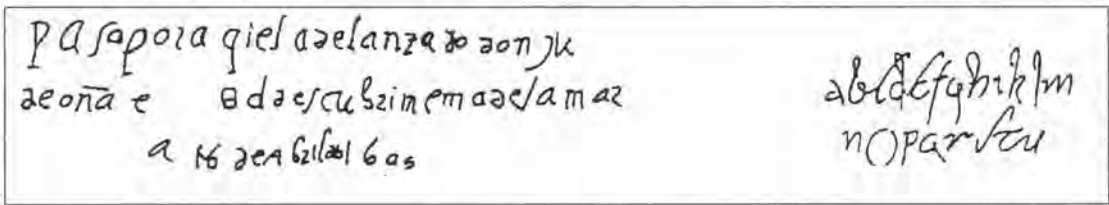 pasapora qiel adelantado don ju
deoña e descubrimemadelamar
a 16 de Abril
abcdefghiklm
nopqrstu